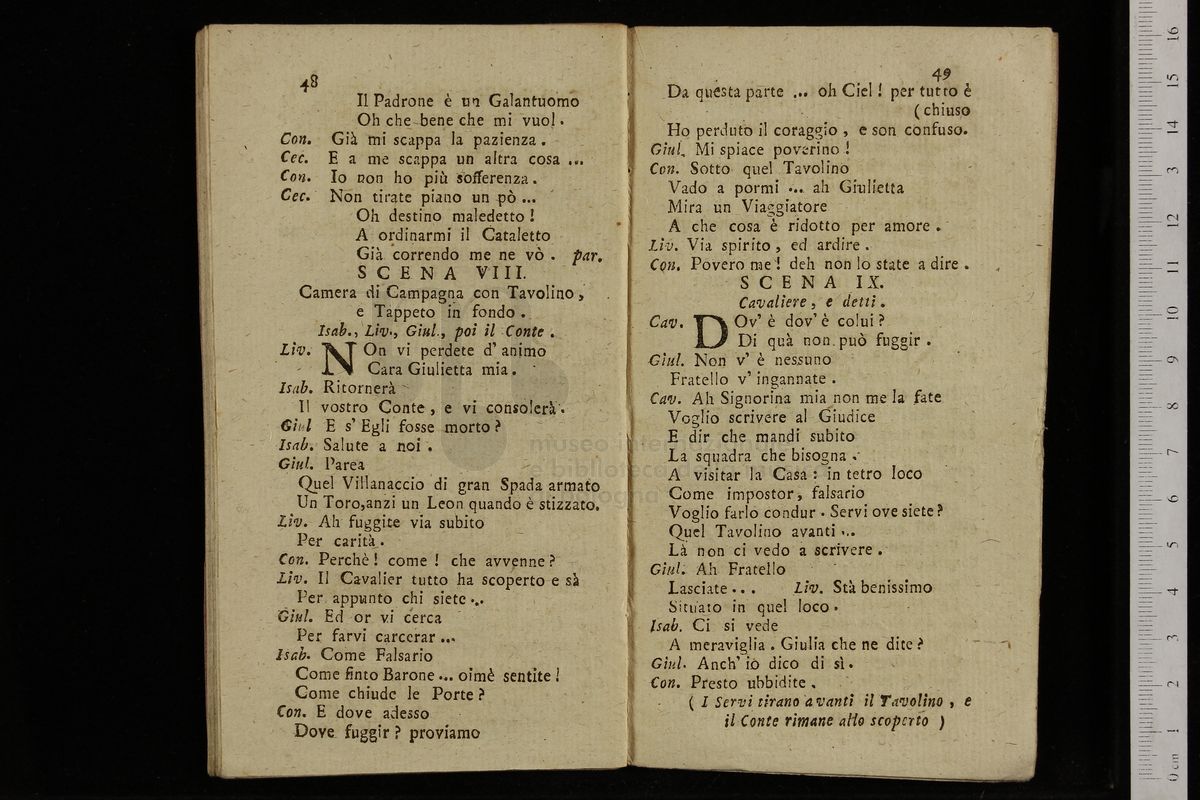 48
Il Padrone è un Galantuomo
Oh che bene che mi vuol.
Con. Già mi scappa la pazienza.
Cec. E a me scappa un altra cosa ...
Con. Io non ho più sofferenza.
Cec. Non tirate piano un pò ...
Oh destino maledetto!
A ordinarmi il Cataletto
Già correndo me ne vò. par.
SCENA VIII.
Camera di Campagna con Tavolino,
e Tappeto in fondo.
Isab., Liv., Giul., poi il Conte.
Liv. NOn vi perdete d' animo
Cara Giulietta mia.
Isab. Ritornerà
Il vostro Conte, e vi consolerà.
Giul E s' Egli fosse morto?
Isab. Salute a noi.
Giul. Parea
Quel Villanaccio di gran Spada armato
Un Toro,anzi un Leon quando è stizzato.
Liv. Ah fuggite via subito
Per carità.
Con. Perchè! come! che avvenne?
Liv. Il Cavalier tutto ha scoperto e sà
Per appunto chi siete...
Giul. Ed or vi cerca
Per farvi carcerar ...
Isab. Come Falsario
Come finto Barone ... oimè sentite!
Come chiude le Porte?
Con. E dove adesso
Dove fuggir? proviamo
49
Da questa parte ... oh Ciel! per tutto è
(chiuso
Ho perduto il coraggio, e son confuso.
Giul. Mi spiace poverino!
Con. Sotto quel Tavolino
Vado a pormi ... ah Giulietta
Mira un Viaggiatore
A che cosa è ridotto per amore.
Liv. Via spirito, ed ardire.
Con. Povero me! deh non lo state a dire.
SCENA IX.
Cavaliere, e detti.
Cav. DOv' è dov' è colui?
Di quà non può fuggir.
Giul. Non v' è nessuno
Fratello v' ingannate.
Cav. Ah Signorina mia non me la fate
Voglio scrivere al Giudice
E dir che mandi subito
La squadra che bisogna.
A visitar la Casa: in tetro loco
Come impostor, falsario
Voglio farlo condur. Servi ove siete?
Quel Tavolino avanti...
Là non ci vedo a scrivere.
Giul. Ah Fratello
Lasciate... Liv. Stà benissimo
Situato in quel loco.
Isab. Ci si vede
A meraviglia. Giulia che ne dite?
Giul. Anch' io dico di sì.
Con. Presto ubbidite.
( I Servi tirano avanti il Tavolino, e
il Conte rimane allo scoperto )
0 cm 1 2 3 4 5 6 7 8 9 10 11 12 13 14 15 16